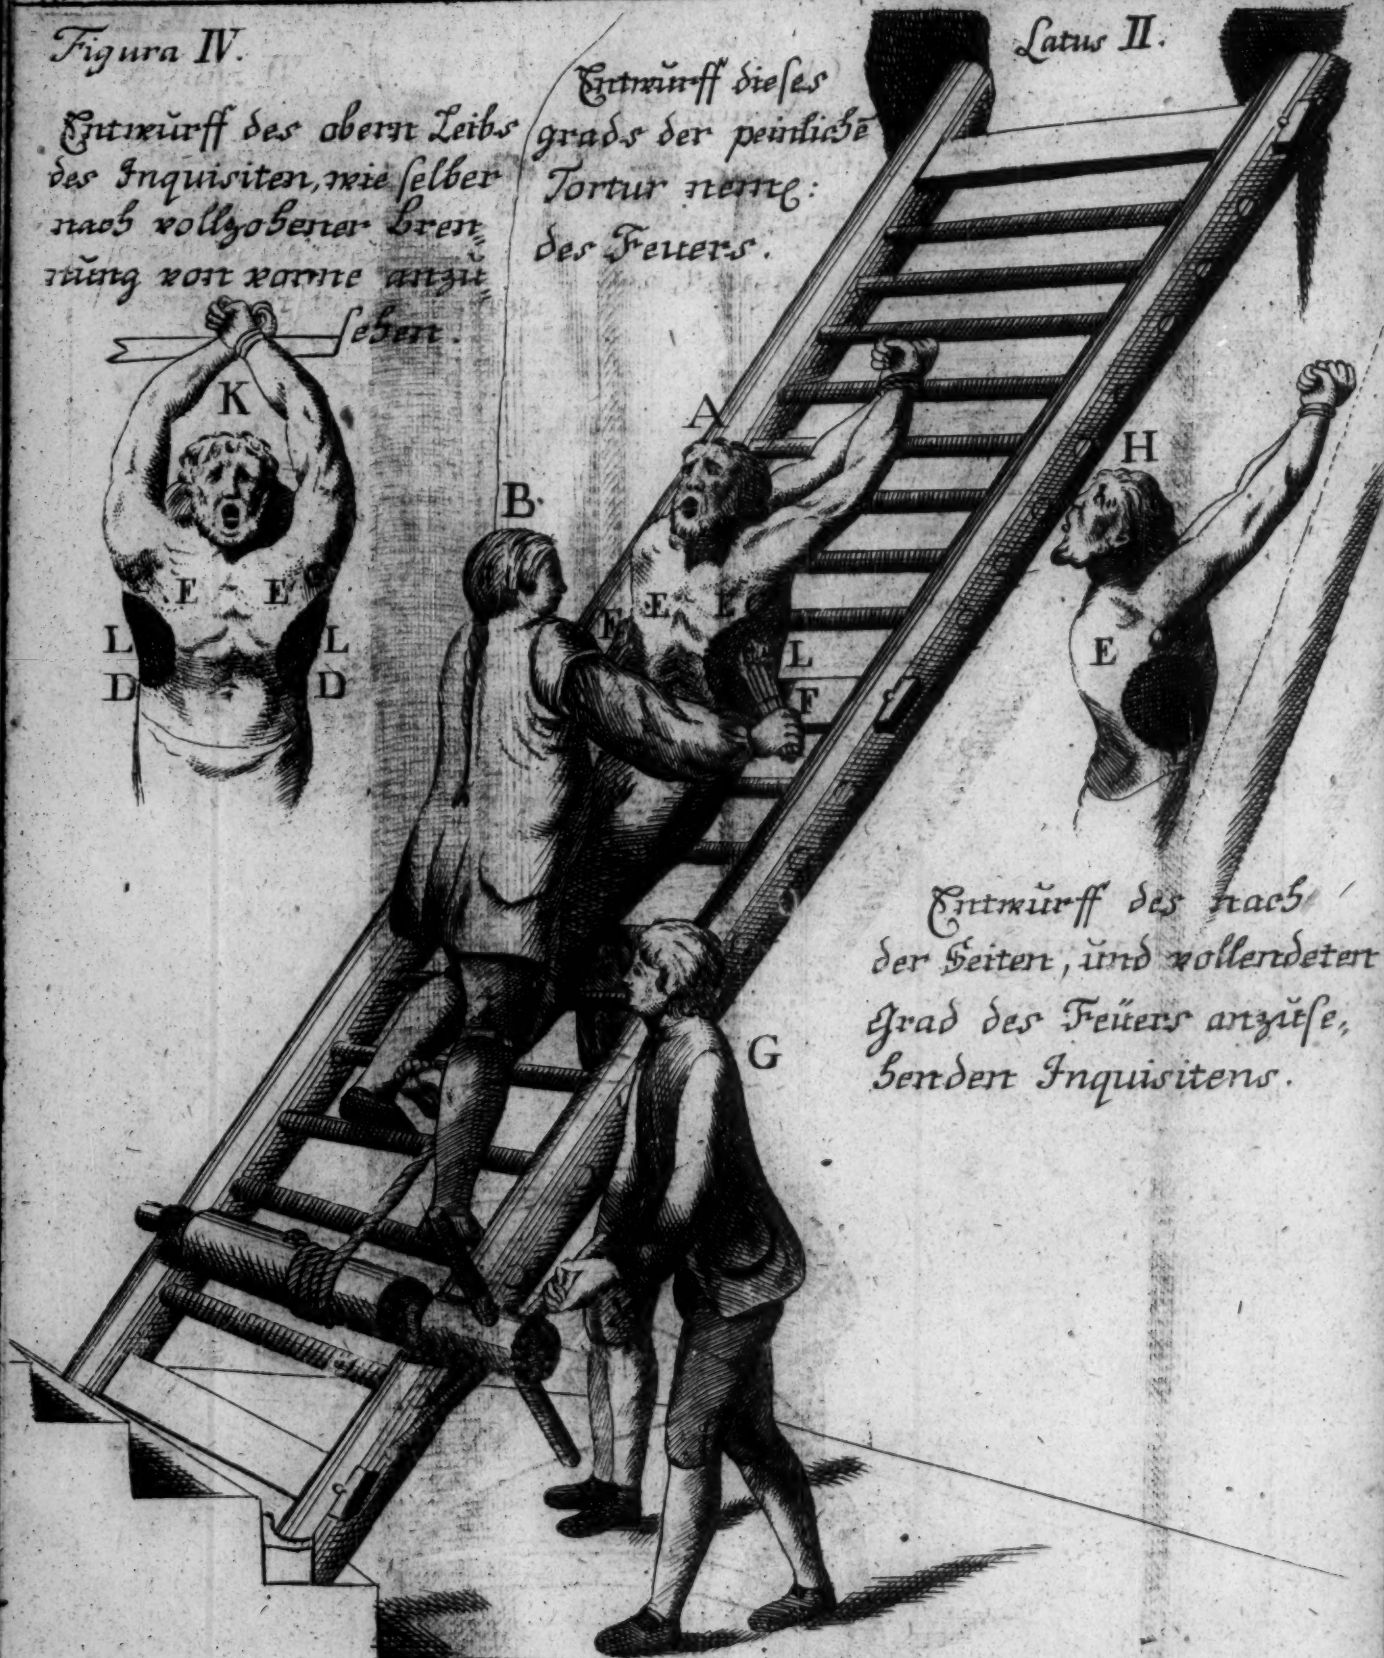 Figura IV.
Entwurff des obern Leibs
des Inquisiten, wie selber
nach vollzohener bren⸗
nung von vorne anzu⸗
sehen.
Entwurff dieses
grads der peinlichē
Tortur neml:
des Feuers.
Latus II.
K
E E
L L
D D
A
B.
F E E
L
F
H
E
G
Entwurff des nach
der Seiten, und vollendeten
Grad des Feüers anzuse⸗
henden Inquisitens.